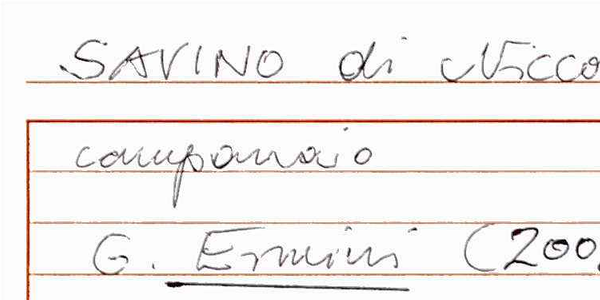 SAVINO di Nicco
campanaio
G. Ermini (200